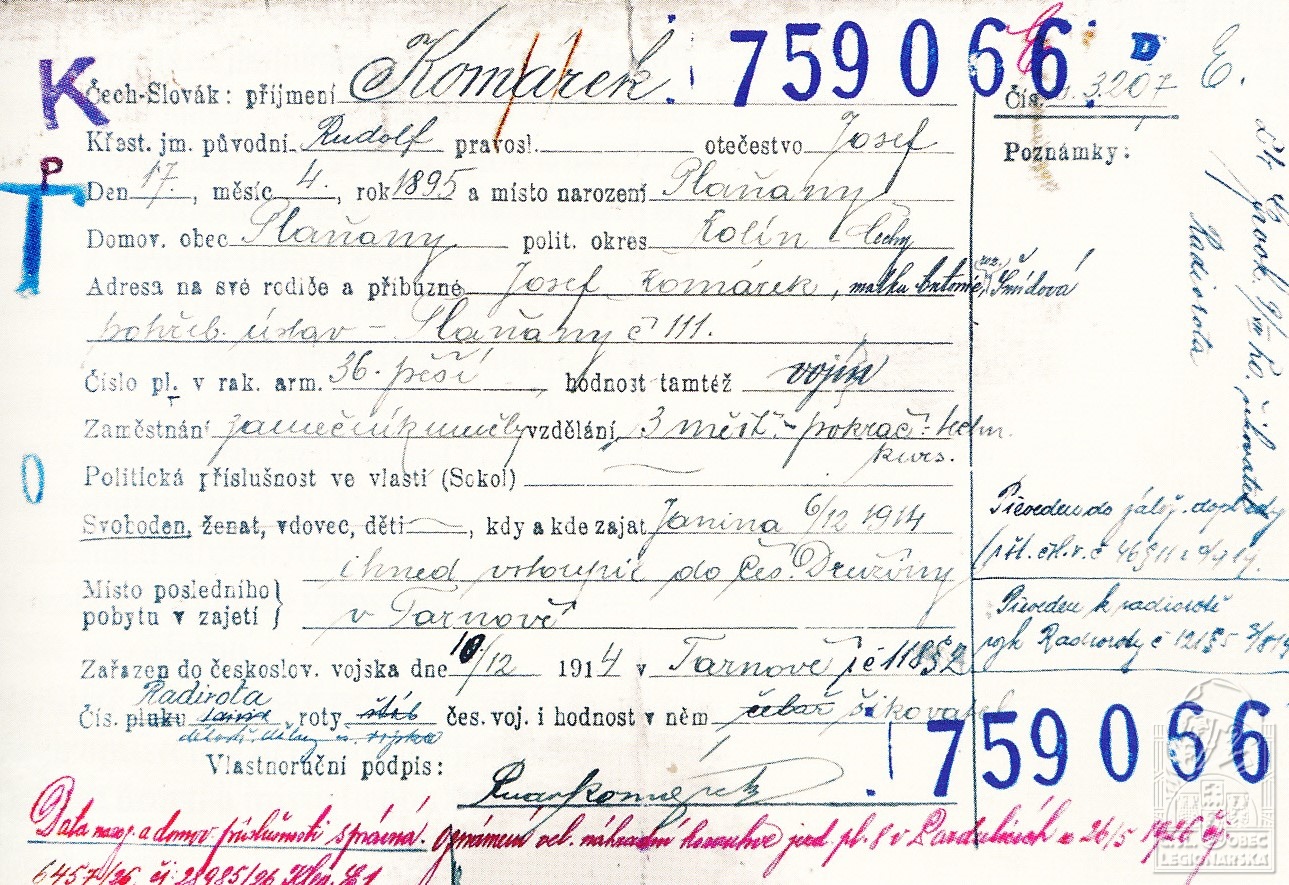 K
P
T
O
759066
D
E.
Čech-Slovák: příjmení Komárek
Čís. 3207
Křest. jm. původní Rudolf pravosl. otečestvo Josef
Poznámky:
Den 17., měsíc 4., rok 1895 a místo narození Plaňany
Domov. obec Plaňany polit. okres Kolín Čechy
Adresa na své rodiče a příbuzné Josef Komárek, matku roz. Šmídová
pohřeb. ústav - Plaňany č 111.
Číslo pl. v rak. arm. 36. pěší, hodnost tamtéž vojín
Zaměstnání zámečník umělý vzdělání 3 měšť. - pokrač. techn.
kurs.
Politická příslušnost ve vlasti (Sokol)
Svoboden, ženat, vdovec, děti, kdy a kde zajat Janina 6/12 1914
Místo posledního pobytu v zajetí } ihned vstoupil do Čes. Družiny
v Tarnově
Zařazen do českoslov. vojska dne 10/12 1914 v Tarnově
Radirota
Čís. pluku roty štáb čes. voj. i hodnost v něm šikovatel
Vlastnoruční podpis:
Radiorota
Převeden do
Převeden k radiorotě
759066
Data naroz. a domov. příslušnosti správná. Oznámení vel. náhradní jezd. pl. 8 v Pardubicích 26/5 1926 čj.
6457/26, čj. 28985/26
OBEC
LEGIONÁŘSKÁ